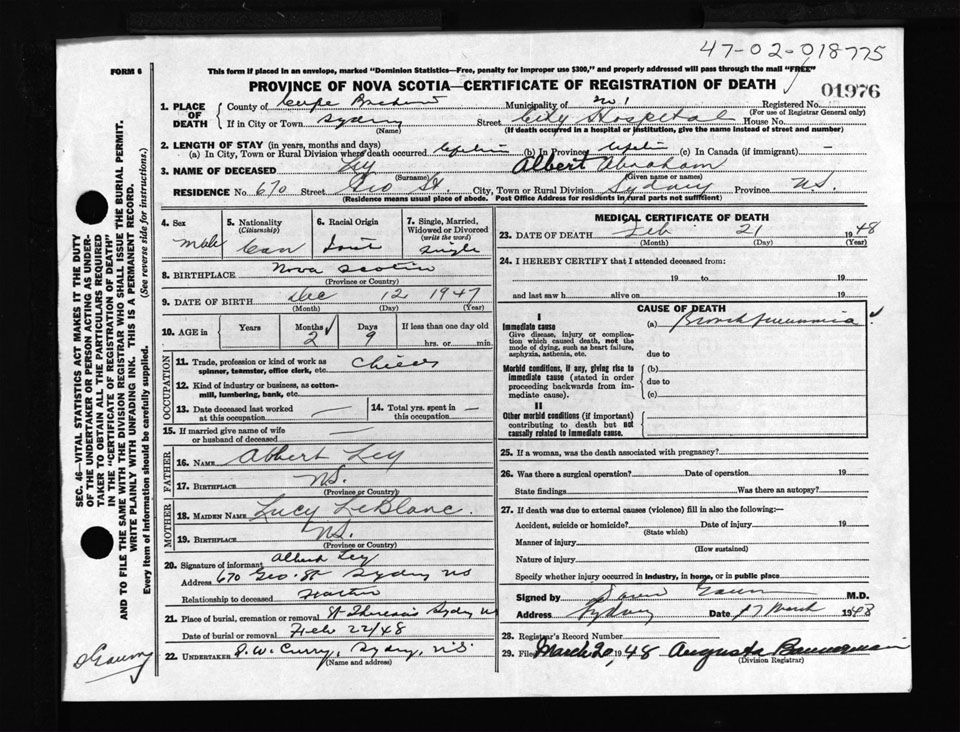 47-02-018775
FORM 6
This form if placed in an envelope, marked "Dominion Statistics—Free, penalty for improper use $300," and properly addressed will pass through the mail "FREE"
PROVINCE OF NOVA SCOTIA—CERTIFICATE OF REGISTRATION OF DEATH
01976
1. PLACE OF DEATH
County of Cape Breton Municipality of No 1 Registered No.
(For use of Registrar General only)
If in City or Town Sydney Street City Hospital House No.
(Name) (If death occurred in a hospital or institution, give the name instead of street and number)
2. LENGTH OF STAY (in years, months and days)
(a) In City, Town or Rural Division where death occurred (b) In Province (c) In Canada (if immigrant) —
3. NAME OF DECEASED Ley Albert Abraham
(Surname) (Given name or names)
RESIDENCE No 670 Street Geo St. City, Town or Rural Division Sydney Province N.S.
(Residence means usual place of abode. Post Office Address for residents in rural parts not sufficient)
4. Sex
Male
5. Nationality
(Citizenship)
Can
6. Racial Origin
7. Single, Married, Widowed or Divorced
(write the word)
Single
8. BIRTHPLACE Nova Scotia
(Province or Country)
9. DATE OF BIRTH Dec 12 1947
(Month) (Day) (Year)
10. AGE in
Years Months Days If less than one day old
2 9 hrs. or min.
OCCUPATION
11. Trade, profession or kind of work as spinner, teamster, office clerk, etc.
12. Kind of industry or business, as cotton-mill, lumbering, bank, etc.
13. Date deceased last worked at this occupation —
14. Total yrs. spent in this occupation —
15. If married give name of wife or husband of deceased —
FATHER
16. NAME Albert Ley
17. BIRTHPLACE N.S.
(Province or Country)
MOTHER
18. MAIDEN NAME Lucy LeBlanc.
19. BIRTHPLACE N.S.
(Province or Country)
20. Signature of informant Albert Ley
Address 670 Geo. St Sydney NS
Relationship to deceased
21. Place of burial, cremation or removal St Theresa's Sydney NS
Date of burial or removal Feb 22/48
22. UNDERTAKER J. W. Curry, Sydney, N.S.
(Name and address)
MEDICAL CERTIFICATE OF DEATH
23. DATE OF DEATH Feb 21 1948
(Month) (Day) (Year)
24. I HEREBY CERTIFY that I attended deceased from:
19 to 19
and last saw h alive on 19
CAUSE OF DEATH
I
Immediate cause
Give disease, injury or complication which caused death, not the mode of dying, such as heart failure, asphyxia, asthenia, etc.
(a) Bronchpneumonia
due to
Morbid conditions, if any, giving rise to immediate cause (stated in order proceeding backwards from immediate cause).
(b)
due to
(c)
II
Other morbid conditions (if important) contributing to death but not causally related to immediate cause.
25. If a woman, was the death associated with pregnancy?
26. Was there a surgical operation? Date of operation 19
State findings Was there an autopsy?
27. If death was due to external causes (violence) fill in also the following:—
Accident, suicide or homicide? Date of injury 19
(State which)
Manner of injury
(How sustained)
Nature of injury
Specify whether injury occurred in industry, in home, or in public place
Signed by M.D.
Address Sydney Date 17 March 1948
28. Registrar's Record Number
29. Filed March 20 1948 Augusta Bannerman
(Division Registrar)
SEC. 46—VITAL STATISTICS ACT MAKES IT THE DUTY
OF THE UNDERTAKER OR PERSON ACTING AS UNDER-
TAKER TO OBTAIN ALL THE PARTICULARS REQUIRED
IN THE "CERTIFICATE OF REGISTRATION OF DEATH"
AND TO FILE THE SAME WITH THE DIVISION REGISTRAR WHO SHALL ISSUE THE BURIAL PERMIT.
WRITE PLAINLY WITH UNFADING INK. THIS IS A PERMANENT RECORD.
Every item of information should be carefully supplied. (See reverse side for instructions.)